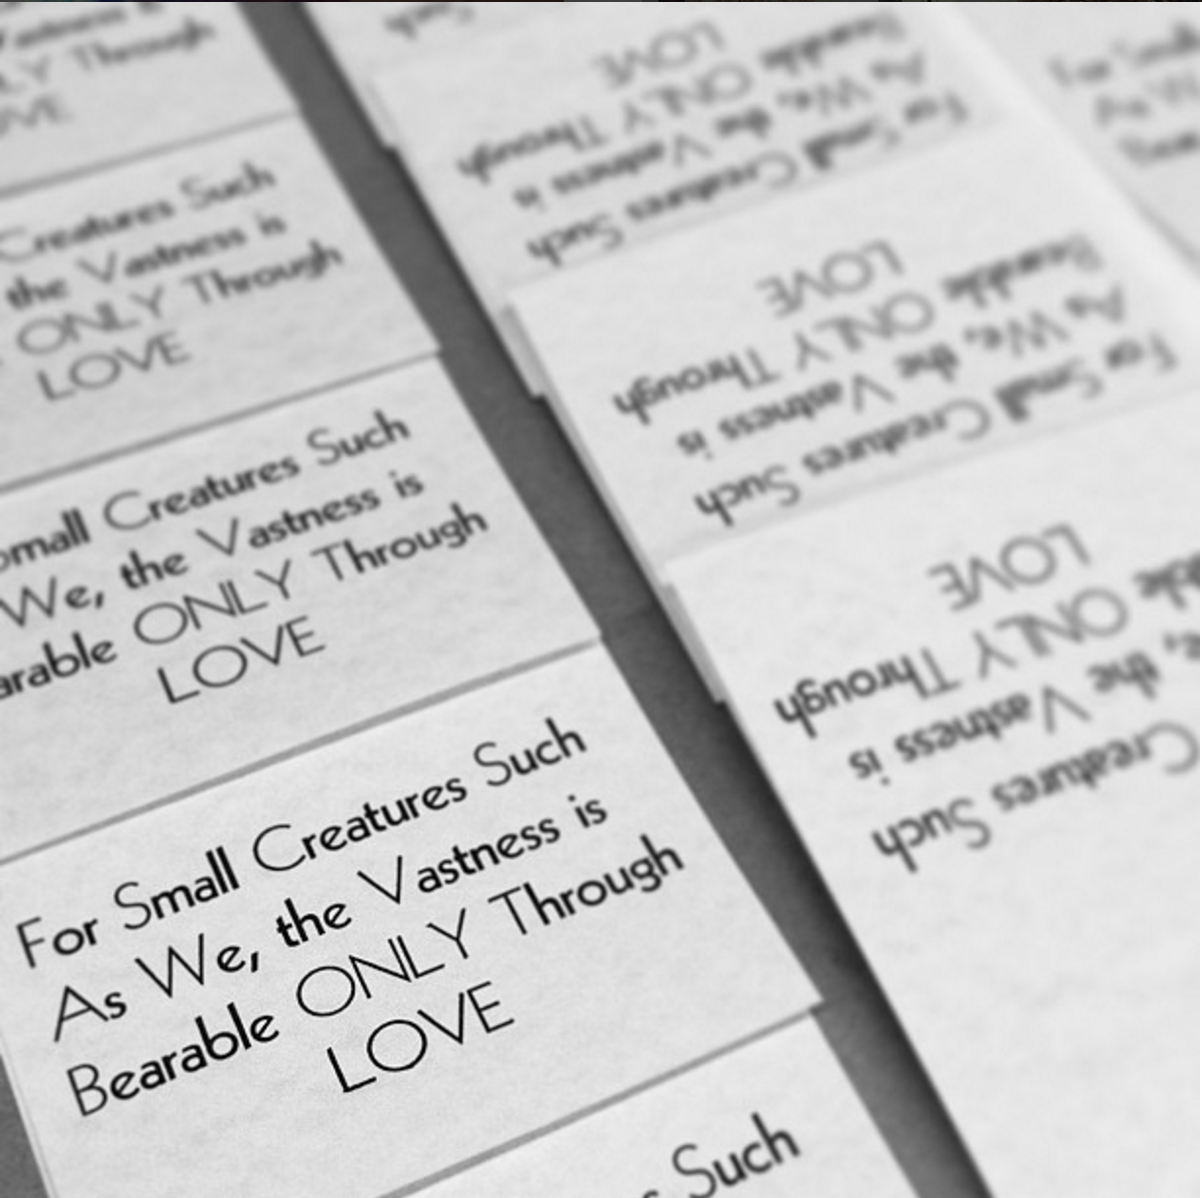 Vastness is
LY Through
OVE
Creatures Such
the Vastness is
ONLY Through
LOVE
Small Creatures Such
We, the Vastness is
arable ONLY Through
LOVE
For Small Creatures Such
As We, the Vastness is
Bearable ONLY Through
LOVE
s Such
Such
For Small Creatures Such
As We, the Vastness is
Bearable ONLY Through
LOVE
For Small Creatures Such
As We, the Vastness is
Bearable ONLY Through
LOVE
Creatures Such
e, the Vastness is
able ONLY Through
LOVE
For Small
As We
Bear